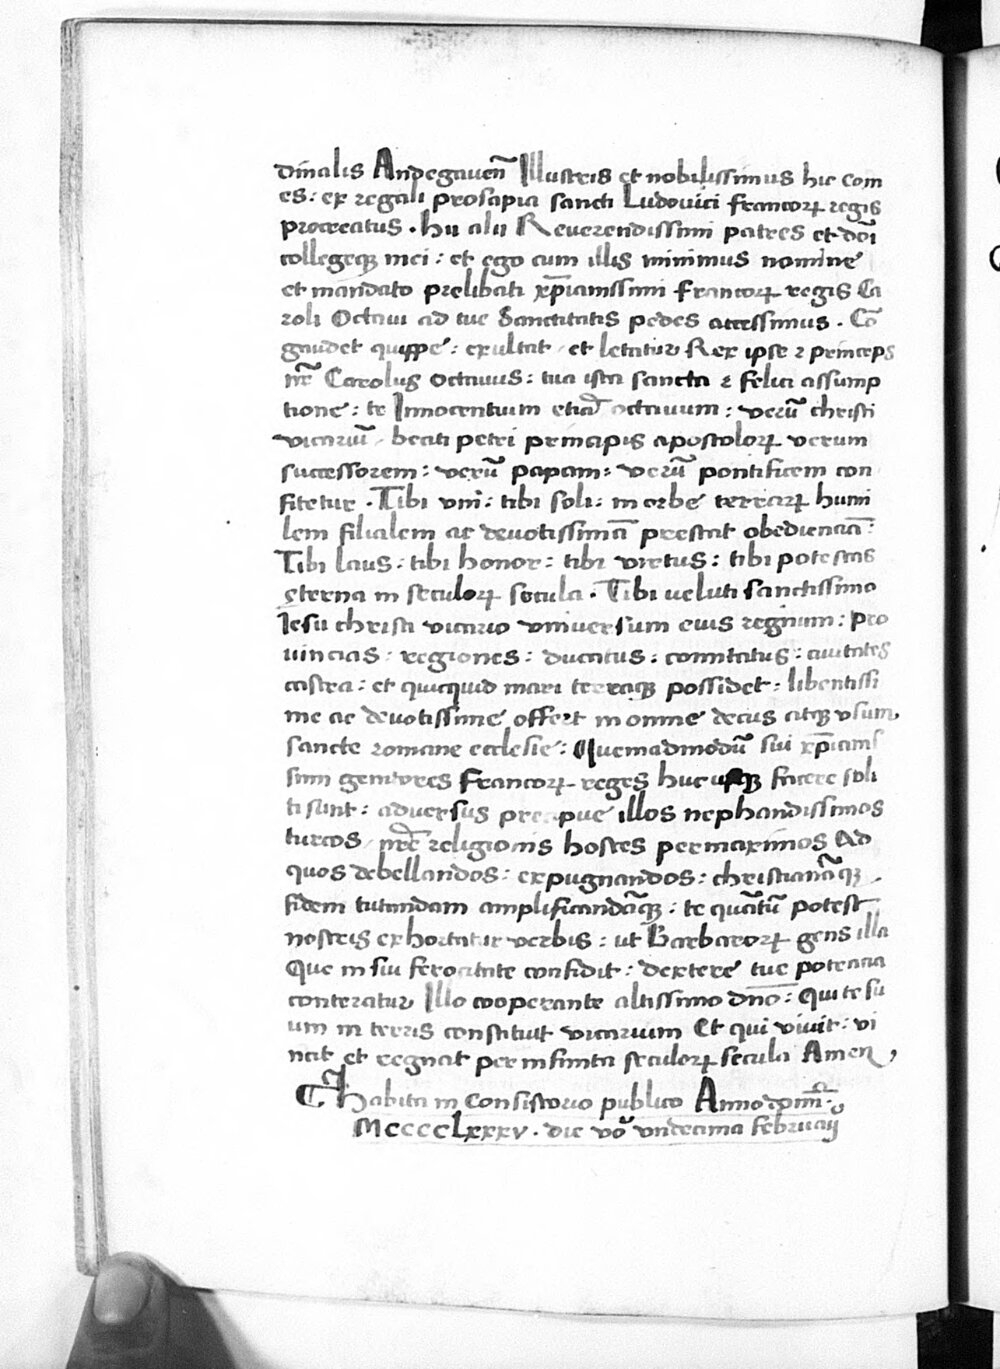 dinalis Andegaueñ Illustris et nobilissimus hic com
es: ex regali prosapia sancti Ludouici francoꝝ regis
procreatus. hii alii Reuerendissimi patres et dñi
collegeqꝫ mei: et ego cum illis minimus nomine
et mandato prelibati xp̄ianissimi francoꝝ regis Ca
roli Octaui ad tue Sanctitatis pedes accessimus. Cō
gaudet quippe: exultat et letatur Rex ipse ⁊ princeps
nr̄ Carolus octauus: tua ista sancta ⁊ felici assump
tione: te Innocentium etiā octauum: verū christi
vicariū beati petri principis apostoloꝝ verum
successorem: verū papam: verū pontificem con
fitetur. Tibi vni: tibi soli: in orbe terraꝝ humi
lem filialem ac deuotissimā prestat obedienciā:
Tibi laus: tibi honor: tibi virtus: tibi potestas
ęterna in seculoꝝ secula. Tibi ueluti sanctissimo
Iesu christi vicario vniuersum euis regnum: pro
uincias: regiones: ducatus: comitatus: ciuitates
castra: et quicquid mari terraqꝫ possidet: libentissi
me ac deuotissime offert in omne decus atqꝫ vsum
sancte romane ecclesie: Quemadmodū sui xp̄ianis
simi genitores francoꝝ reges huc usqꝫ facere soli
ti sunt: aduersus precipue illos nephandissimos
turcos nr̄e religionis hostes permaximos Ad
quos debellandos: expugnandos: christianāqꝫ
fidem tutandam amplificandāqꝫ: te quātū potest
nostris exhortatur verbis: ut Barbaroꝝ gens illa
Que in sui ferocitate confidit: dextere tue potencia
conteratur Illo cooperante altissimo dn̄o: Qui te su
um in terris constituit vicarium Et qui viuit: vi
ncit et regnat per infinita seculoꝝ secula Amen,
Habita in Consistorio publico Anno dom̄:
MCCCCLXXXV. die vo᷑ vndecima februarij